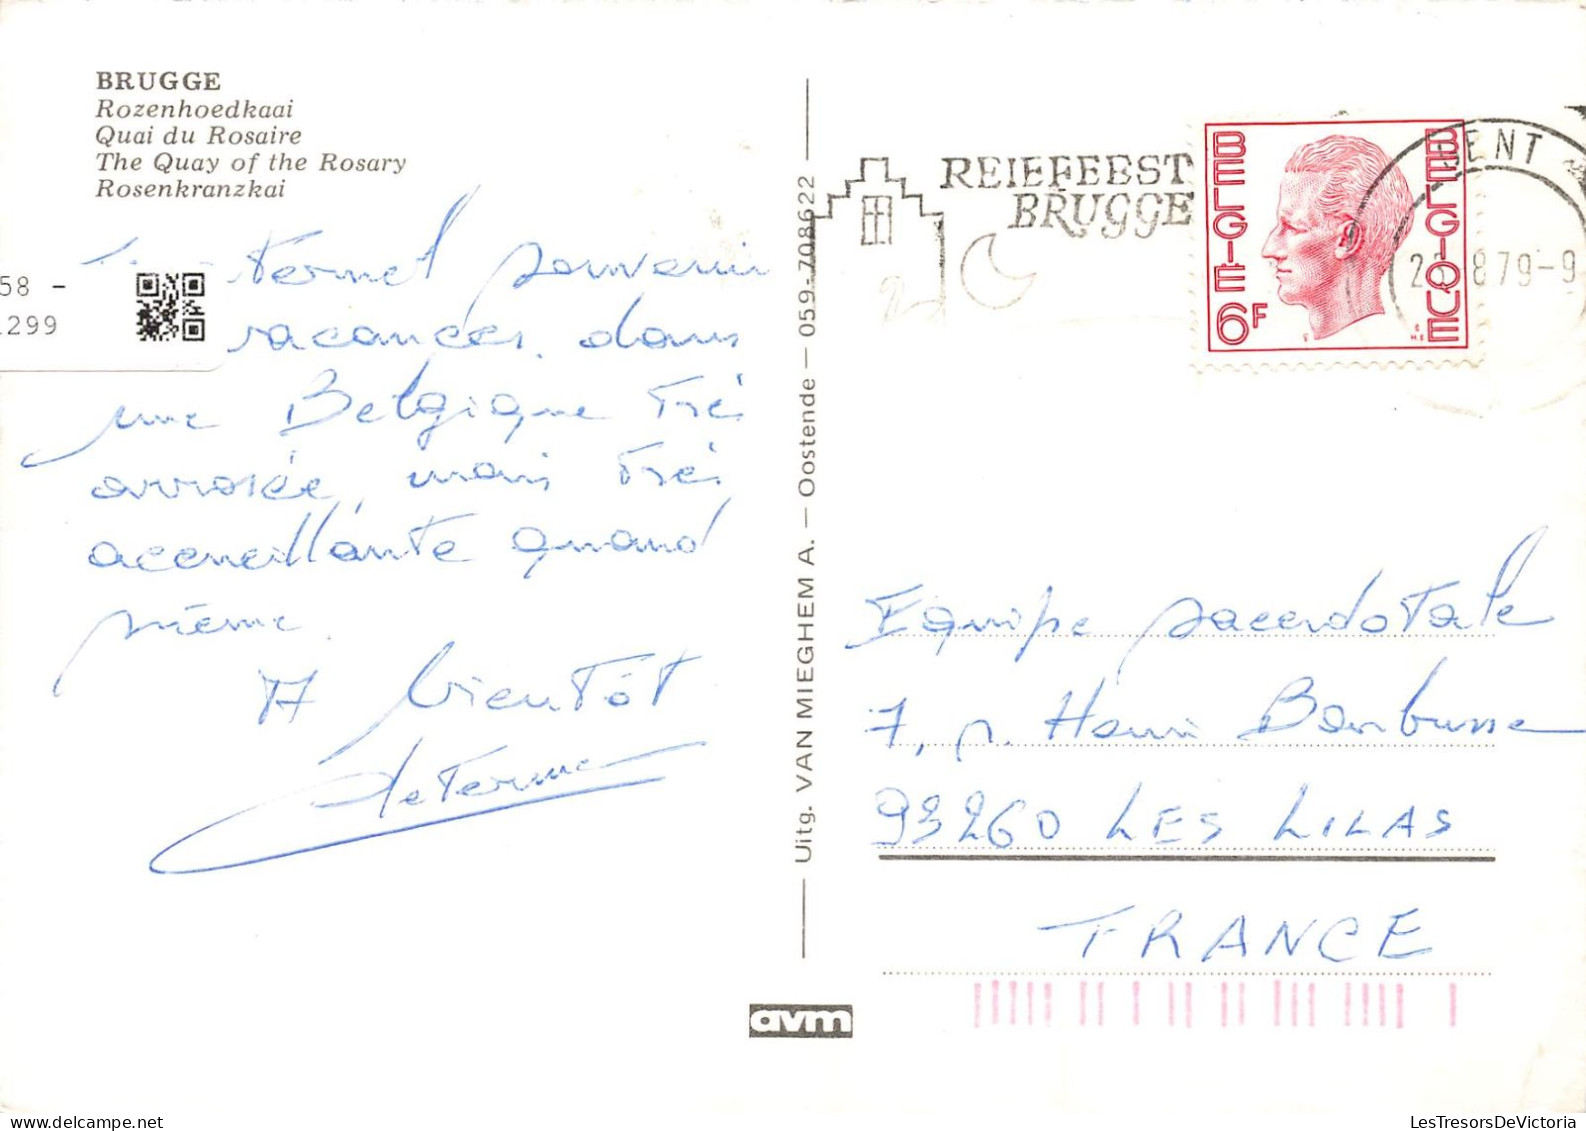 BRUGGE
Rozenhoedkaai
Quai du Rosaire
The Quay of the Rosary
Rosenkranzkai
58 -
299
souvenir
vacances, dans
une Belgique très
arrosée, mais très
accueillante quand
même.
A bientôt
Uitg. VAN MIEGHEM A. — Oostende — 059-708622
REIEFEEST
BRUGGE
BELGIE
6F
BELGIQUE
GENT
879-9
Equipe sacerdotale
7, r. Henri Barbusse
93260 LES LILAS
FRANCE
avm
LesTresorsDeVictoria